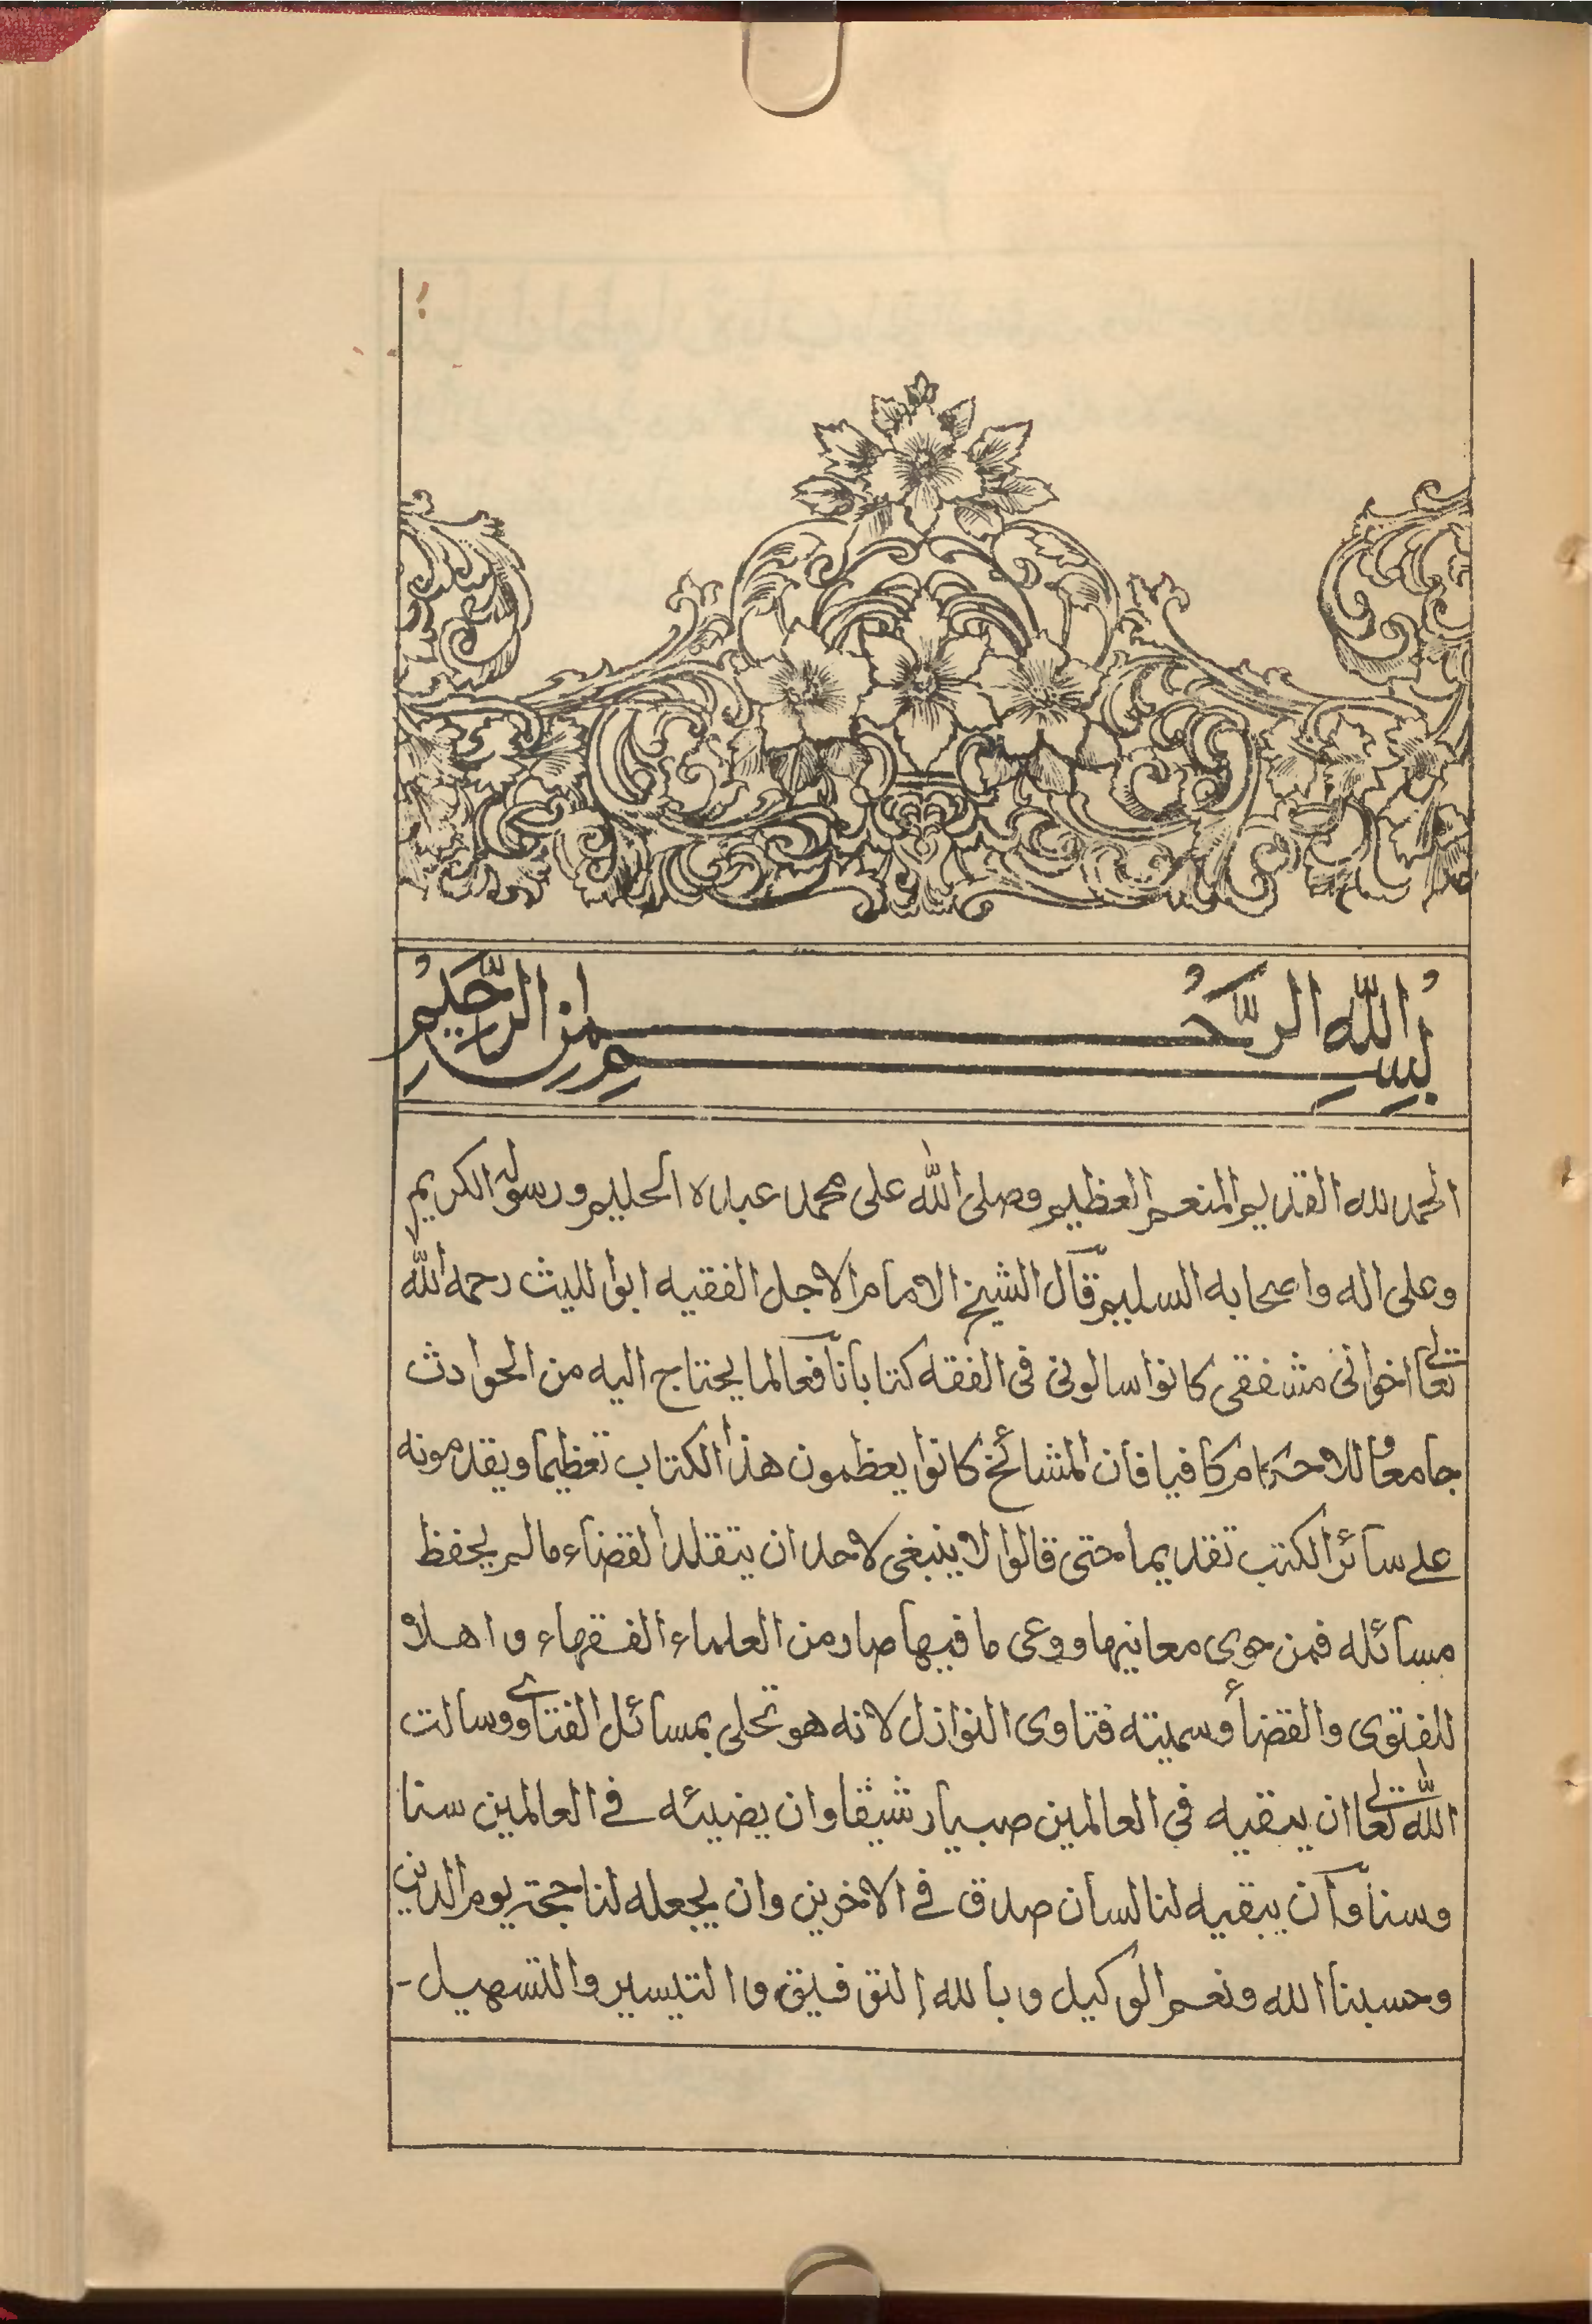 بسم الله الرحمن الرحيم
الحمد لله القديم المنعم العظيم وصلى الله على محمد عبده الحليم ورسوله الكريم
وعلى اله واصحابه السليم قال الشيخ الامام الاجل الفقيه ابو الليث رحمه الله
تعالى اخوانى مشفقى كانوا سالونى فى الفقه كتابا نافعا لما يحتاج اليه من الحوادث
جامعا للاحكام كافيا فان المشائخ كانوا يعظمون هذا الكتاب تعظيما ويقدمونه
على سائر الكتب تقديما حتى قالوا لا ينبغى لاحد ان يتقلد القضاء مالم يحفظ
مسائله فمن حوى معانيها ووعى ما فيها صار من العلماء الفقهاء واهلا
للفتوى والقضا وسميته فتاوى النوازل لانه هو تحلى بمسائل الفتاوى وسالت
الله تعالى ان يبقيه فى العالمين صبيا رشيقا وان يضيئه فى العالمين سنا
وسنا وان يبقيه لنا لسان صدق فى الاخرين وان يجعله لنا حجة يوم الدين
وحسبنا الله ونعم الوكيل وبالله التوفيق والتيسير والتسهيل -